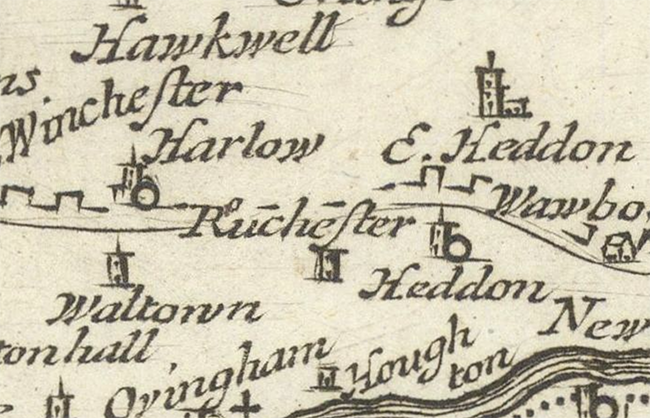 Hawkwell
Wincheſter
Harlow
E. Heddon
Rūchēſter
Heddon
Waltown
tonhall
New
Ovingham
Hough
ton